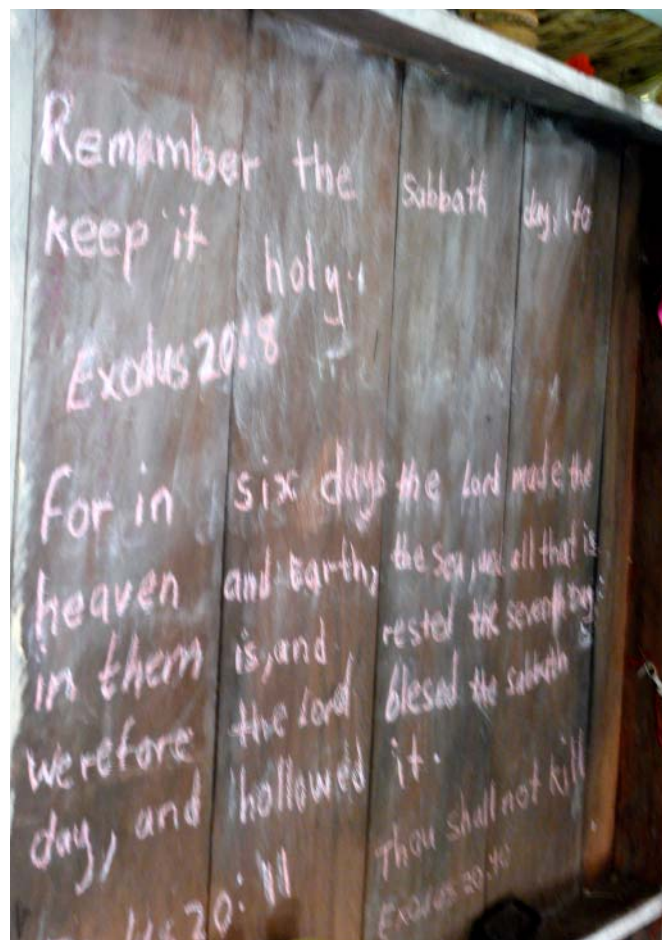 Remember the Sabbath day, to
keep it holy.
Exodus 20:8
For in six days the Lord made the
heaven and Earth, the Sea, and all that is
in them is, and rested the seventh day:
werefore the Lord blesed the sabbath
day, and hollowed it.
20:11
Thou shall not kill
Exodus 20: